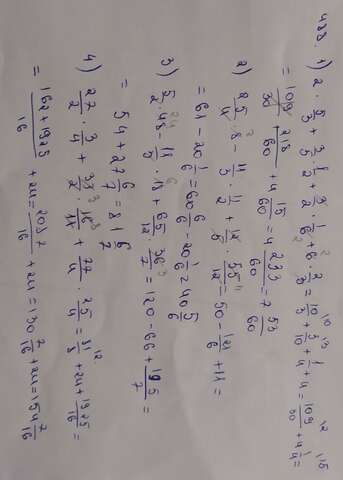 438. 1) 2 · 5/3 + 3/5 · 1/2 + 3/2 · 1/6 + 6 · 2/3 = 10/3 + 3/10 + 1/4 + 4 = 109/30 + 4 1/4 =
= 109/30 218/60 + 4 15/60 = 4 233/60 = 7 53/60
2) 25/4 · 8 - 11/3 · 11/2 + 12/5 · 55/12 = 50 - 121/6 + 11 =
= 61 - 20 1/6 = 60 6/6 - 20 1/6 = 40 5/6
3) 5/2 · 48 - 11/3 · 18 + 65/12 · 36/7 = 120 - 66 + 195/7 =
= 54 + 27 6/7 = 81 6/7
4) 27/2 · 3/4 + 33/2 · 16/11 + 77/4 · 25/4 = 81/8 + 24 + 1925/16 =
= 162+1925/16 + 24 = 2087/16 + 24 = 130 7/16 + 24 = 154 7/16